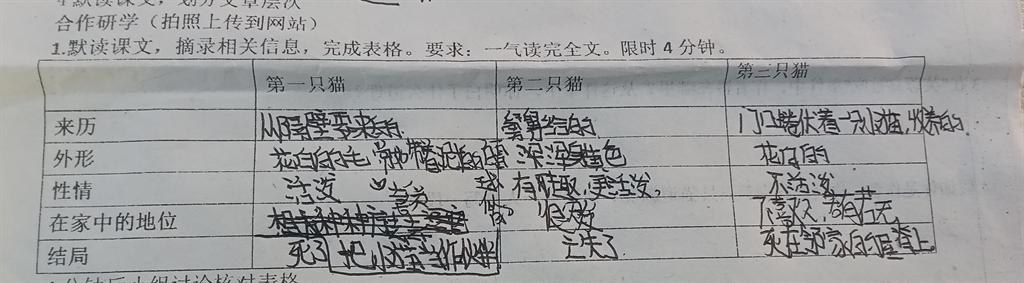 4.默读课文，划分文章层次
合作研学（拍照上传到网站）
1.默读课文，摘录相关信息，完成表格。要求：一气读完全文。限时 4 分钟。
第一只猫 第二只猫 第三只猫
来历 从隔壁要来的 舅舅给的 门口蜷伏着一只小猫，收养的
外形 花白的毛，常如带着泥土的白雪球 浑身黄色
花白的
性情 活泼 有趣，更活泼。 不活泼
在家中的地位 很 不喜欢，若有若无
结局 死了 把小猫当作伙伴 亡失了 死在邻家的屋脊上。